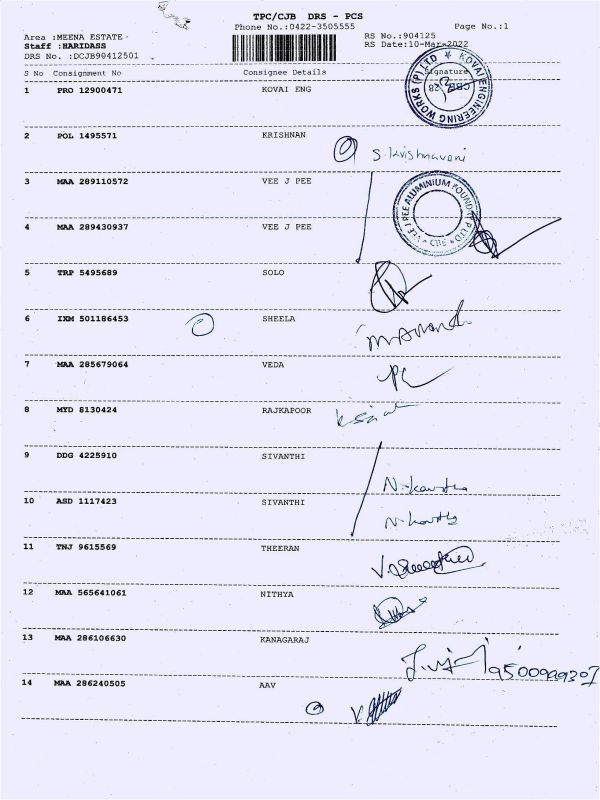 TPC/CJB DRS - PCS
Phone No.:0422-3505555 Page No.:1
Area :MEENA ESTATE- RS No.:904125
Staff :HARIDASS RS Date:10-Mar-2022
DRS No. :DCJB90412501
S No Consignment No Consignee Details Signature
1 PRO 12900471 KOVAI ENG
KOVAI ENGINEERING WORKS (P) LTD
2 POL 1495571 KRISHNAN
S. Krishnaveni
3 MAA 289110572 VEE J PEE
VEE J PEE ALUMINIUM FOUNDRY P LTD
CBE
4 MAA 289430937 VEE J PEE
5 TRP 5495689 SOLO
6 IXM 501186453 SHEELA
7 MAA 285679064 VEDA
8 MYD 8130424 RAJKAPOOR
9 DDG 4225910 SIVANTHI
10 ASD 1117423 SIVANTHI
11 TNJ 9615569 THEERAN
12 MAA 565641061 NITHYA
13 MAA 286106630 KANAGARAJ
14 MAA 286240505 AAV